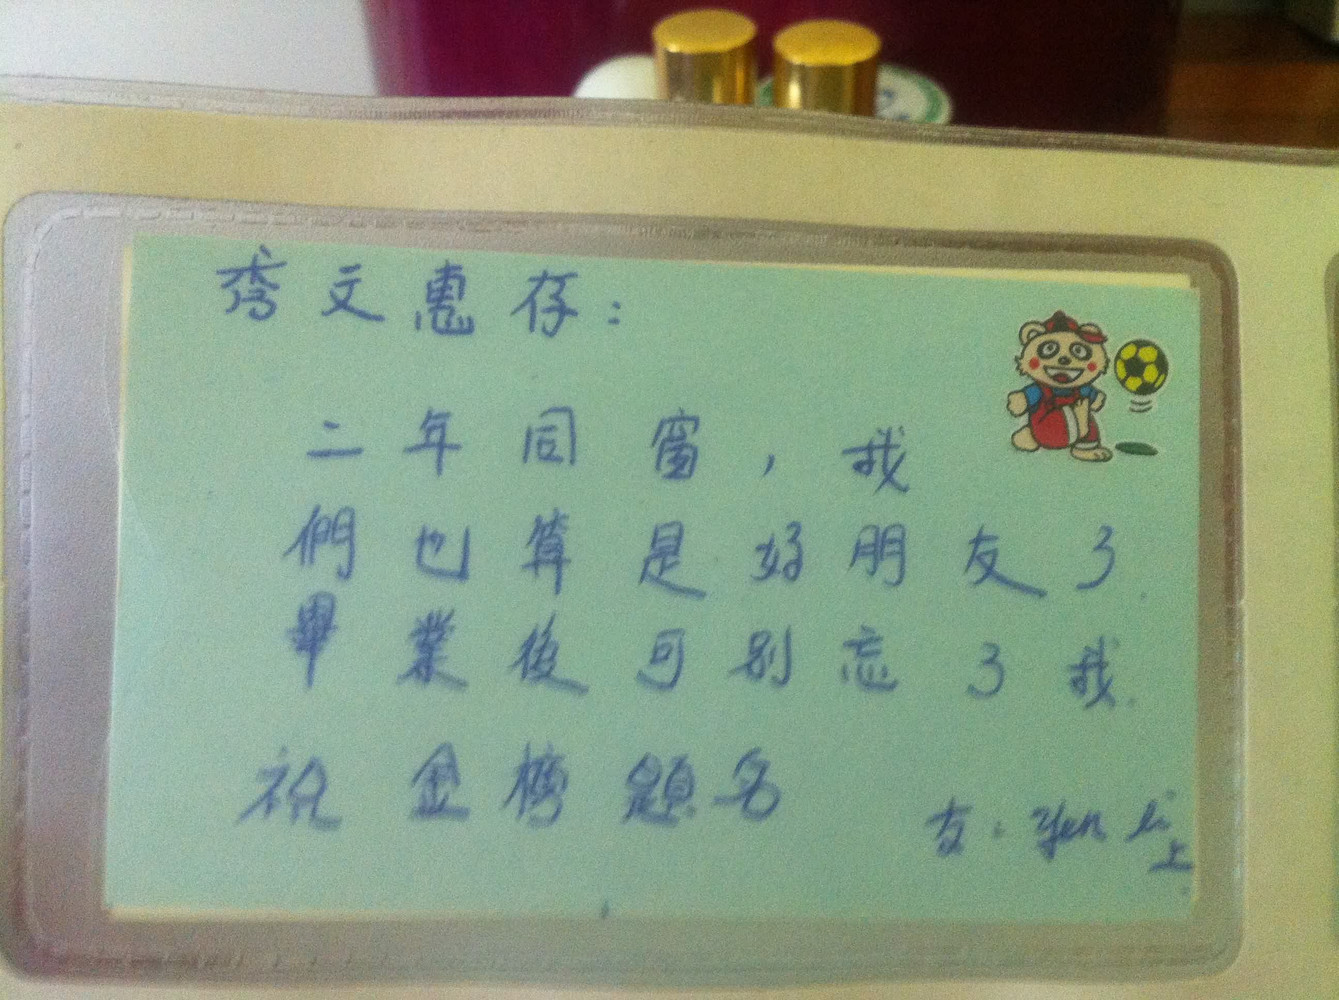 秀文惠存：
二年同窗，我
們也算是好朋友了.
畢業後可別忘了我.
祝金榜題名
友：yen li 上